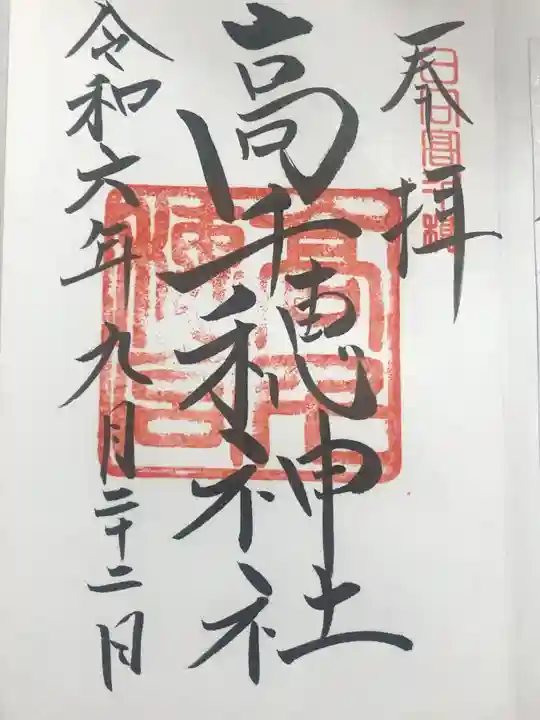 奉拝
高千穂神社
令和六年九月二十二日